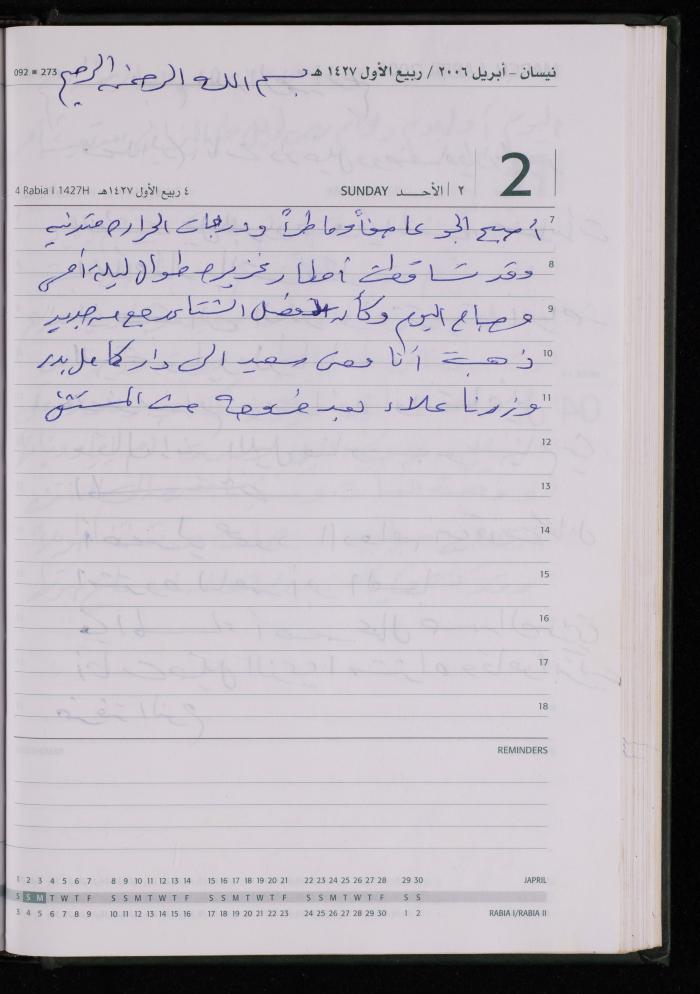 نيسان - أبريل ٢٠٠٦ / ربيع الأول ١٤٢٧ هـ بسم الله الرحمن الرحيم 092 = 273
2
٢ | الأحــد SUNDAY ٤ ربيع الأول ١٤٢٧هـ 4 Rabia I 1427H
7 أصبح الجو عاصفاً وماطراً ودرجات الحراره متدنيه
8 وقد تساقطت أمطار غزيره طوال ليلة أمس
9 وصباح اليوم وكأن فصل الشتاء رجع من جديد
10 ذهبت أنا وحسن سعيد الى دار كامل بدر
11 وزرنا علاء بعد خروجه من المستشفى
12
13
14
15
16
17
18
REMINDERS
1 2 3 4 5 6 7 8 9 10 11 12 13 14 15 16 17 18 19 20 21 22 23 24 25 26 27 28 29 30 JAPRIL
S S M T W T F S S M T W T F S S M T W T F S S M T W T F S S
3 4 5 6 7 8 9 10 11 12 13 14 15 16 17 18 19 20 21 22 23 24 25 26 27 28 29 30 1 2 RABIA I/RABIA II